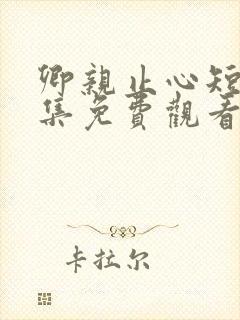 卿親止心短
集免費觀看
卡拉尔